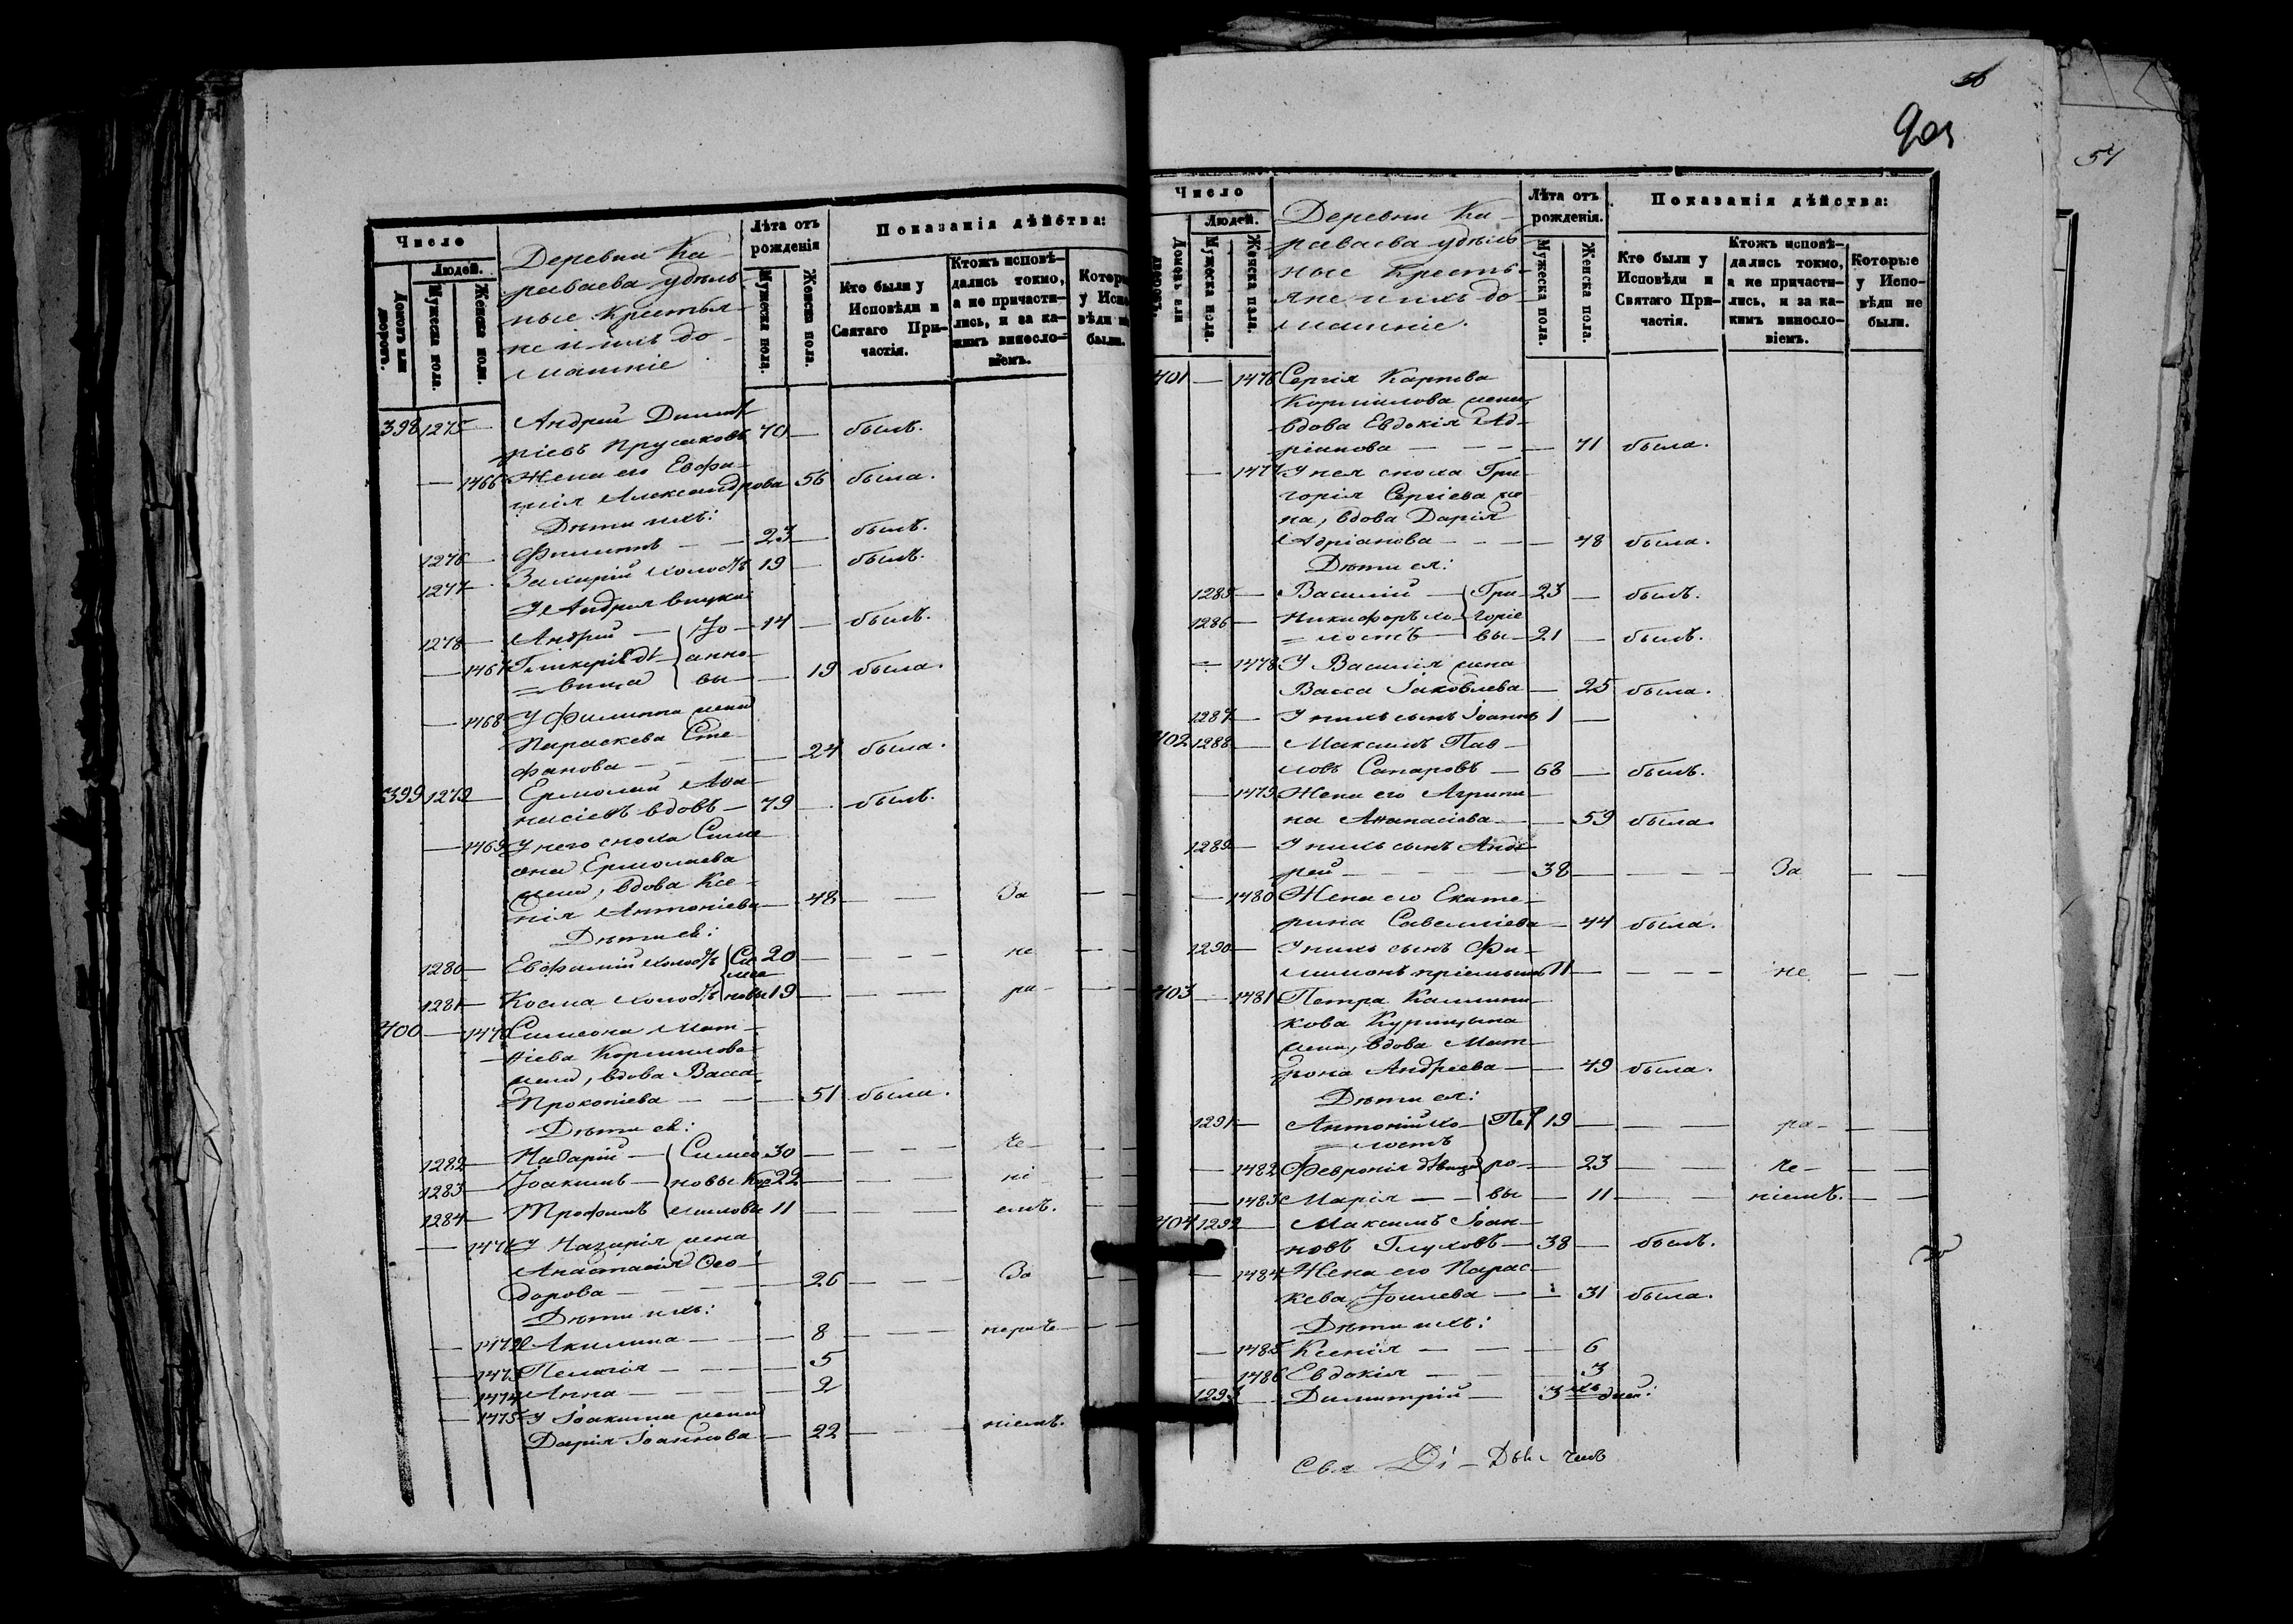 Число
Людей.
Домовъ или дворовъ.
Мужеска пола.
Женска пола.
Деревни Ка-
раваева удѣль-
ные Крестья-
не и ихъ до-
машніе
Лѣта отъ
рожденія
Мужеска пола.
Женска пола.
Показанія дѣйства:
Кто были у
Исповѣди и
Святаго При-
частія.
Ктожъ исповѣ-
дались токмо,
а не причасти-
лись, и за ка-
кимъ винословіемъ.
Которые
у Испо-
вѣди не
были.
398 1275 — Андрей Димит-
ріевъ Прусаковъ 70 — былъ.
— 1466 Жена его Евфи-
мія Александрова 56 была.
Дѣти ихъ:
1276 — Филиппъ — — 23 — былъ.
1277 — Захарій холостъ 19 — былъ.
У Андрея внуки
1278 — Андрей — Іо- 14 — былъ.
— 1467 Гликерія дѣ- анно-
= вица вы — 19 была.
— 1468 У Филиппа жена
Параскева Сте-
фанова — — — 24 была.
399 1279 — Ермолай Аѳа-
насіевъ вдовъ — 79 — былъ.
— 1469 У него сноха Симе-
она Ермолаева
жена, вдова Ксе-
нія Антоніева — 48 — — За — —
Дѣти ея:
1280 — Евфимій холостъ Си- 20 — — — не — —
мео-
1281 — Косма холостъ новы 19 — — — ра- — —
400 — 1470 Симеона Мат-
ѳіева Кормилова
жена, вдова Васса
Прокопіева — — — 51 была.
Дѣти ея:
1282 — Назарій — Симео- 30 — — — че- — —
1283 — Іоакимъ — новы Кор- 22 — — — ні- — —
1284 — Трофимъ миловы 11 — — — емъ. — —
— 1471 У Назарія жена
Анастасія Ѳео-
дорова — — — 26 — — За — —
Дѣти ихъ:
— 1472 Акилина — — — 8 — — нераче- — —
— 1473 Пелагія — — — 5
— 1474 Анна — — — 2
— 1475 У Іоакима жена
Дарія Іоаннова — 22 — — ніемъ.
56
51
Число
Людей.
Домовъ или дворовъ.
Мужеска пола.
Женска пола.
Деревни Ка-
раваева удѣль-
ные Кресть-
яне и ихъ до-
машніе.
Лѣта отъ
рожденія.
Мужеска пола.
Женска пола.
Показанія дѣйства:
Кто были у
Исповѣди и
Святаго При-
частія.
Ктожъ исповѣ-
дались токмо,
а не причасти-
лись, и за ка-
кимъ винословіемъ.
Которые
у Испо-
вѣди не
были.
401 — 1476 Сергія Карпова
Кормилова жена,
вдова Евдокія Ад-
ріанова — — — 71 была.
— 1477 У нея сноха Гри-
горія Сергіева же-
на, вдова Дарія
Адріанова — — — 48 была.
Дѣти ея:
1285 — Василій — Гри- 23 — былъ.
1286 — Никифоръ хо- горіе-
= лостъ — вы — 21 — былъ.
— 1478 У Василія жена
Васса Іаковлева — 25 была.
1287 — У нихъ сынъ Іоаннъ 1 —
402 1288 — Максимъ Пав-
ловъ Сапаровъ — 68 — былъ.
— 1479 Жена его Агрипи-
на Аѳанасіева — 59 была.
1289 — У нихъ сынъ Анд-
рей — — — 38 — — — — За — —
— 1480 Жена его Екате-
рина Савелліева — 44 была.
1290 — У нихъ сынъ Фи-
лимонъ пріемышъ 11 — — — — не — —
403 — 1481 Петра Каллини-
кова Курицына
жена, вдова Мат-
рона Андреева — — 49 была.
Дѣти ея:
1291 — Антоній хо- Пет- 19 — — — ра- — —
= лостъ
— 1482 Февронія дѣвица ро- — 23 — — че- — —
— 1483 Марія — — вы — 11 — — ніемъ. — —
404 1292 — Максимъ Іоан-
новъ Глуховъ — 38 — былъ.
— 1484 Жена его Парас-
кева Іоилева — — 31 была.
Дѣти ихъ:
— 1485 Ксенія — — — 6
— 1486 Евдокія — — — 3
1293 — Димитрій — 3 хъ дней.